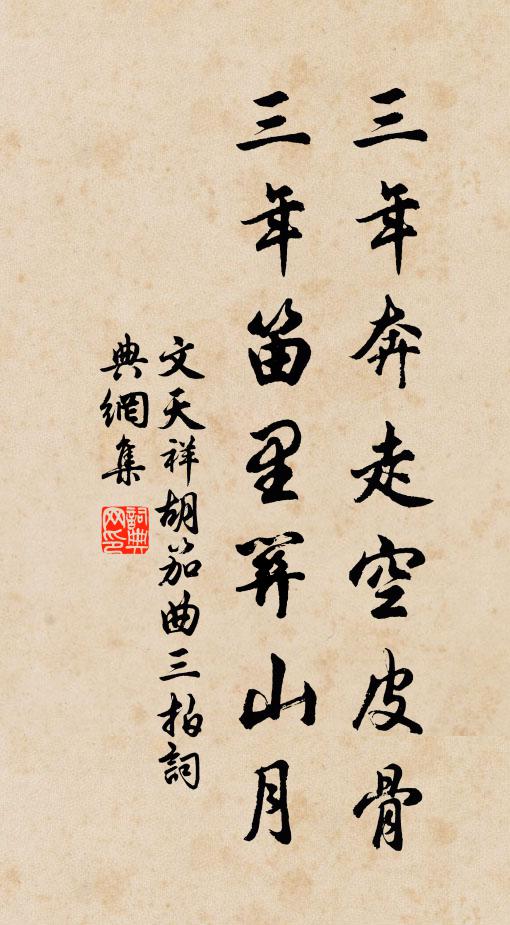 三年奔走空皮骨
三年笛里關山月
文天祥胡笳曲三拍詞
典網集
詞典
网印